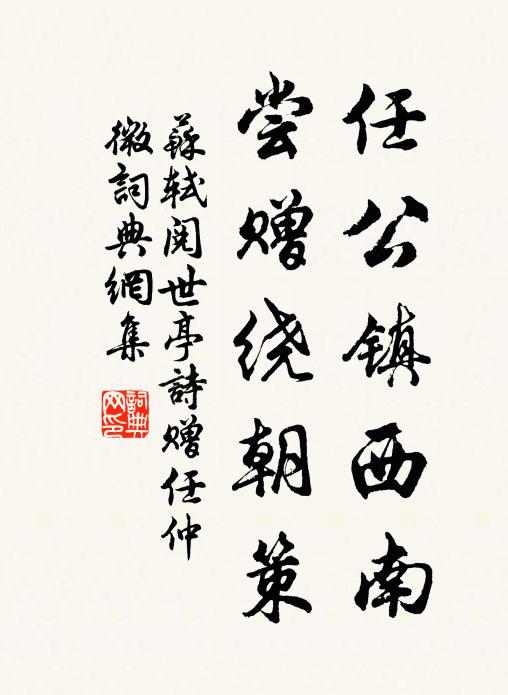 任公镇西南
尝赠绕朝策
蘇軾閱世亭詩贈任仲
微詞典網集
詞典
网印